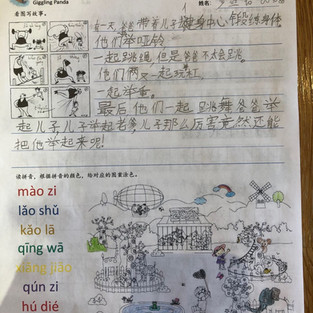 Giggling Panda
姓名:
看图写故事。
有一天爸爸带着儿子去健身中心锻练身体
他们举哑铃
一起跳绳,但是爸爸不太会跳。
他们俩又一起玩杠
一起举重。
最后他们一起跳舞爸爸举
起儿子儿子举起老爸儿子那么厉害竟然还能
把他举起来呢!
读拼音,根据拼音的颜色,给对应的图案涂色。
mào zi
lǎo shǔ
kǎo lā
qīng wā
xiāng jiāo
qún zi
hú dié